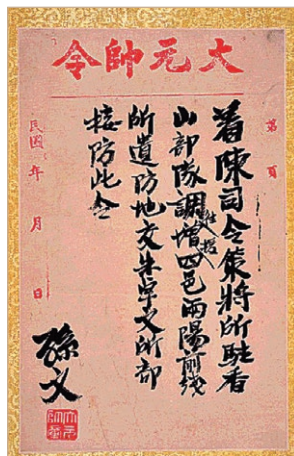 大元帥令
第 頁
著陳司令策將所駐香
山部隊調增四邑兩陽前线
所遺防地交朱卓文所部
接防此令
孫文
民國 年 月 日